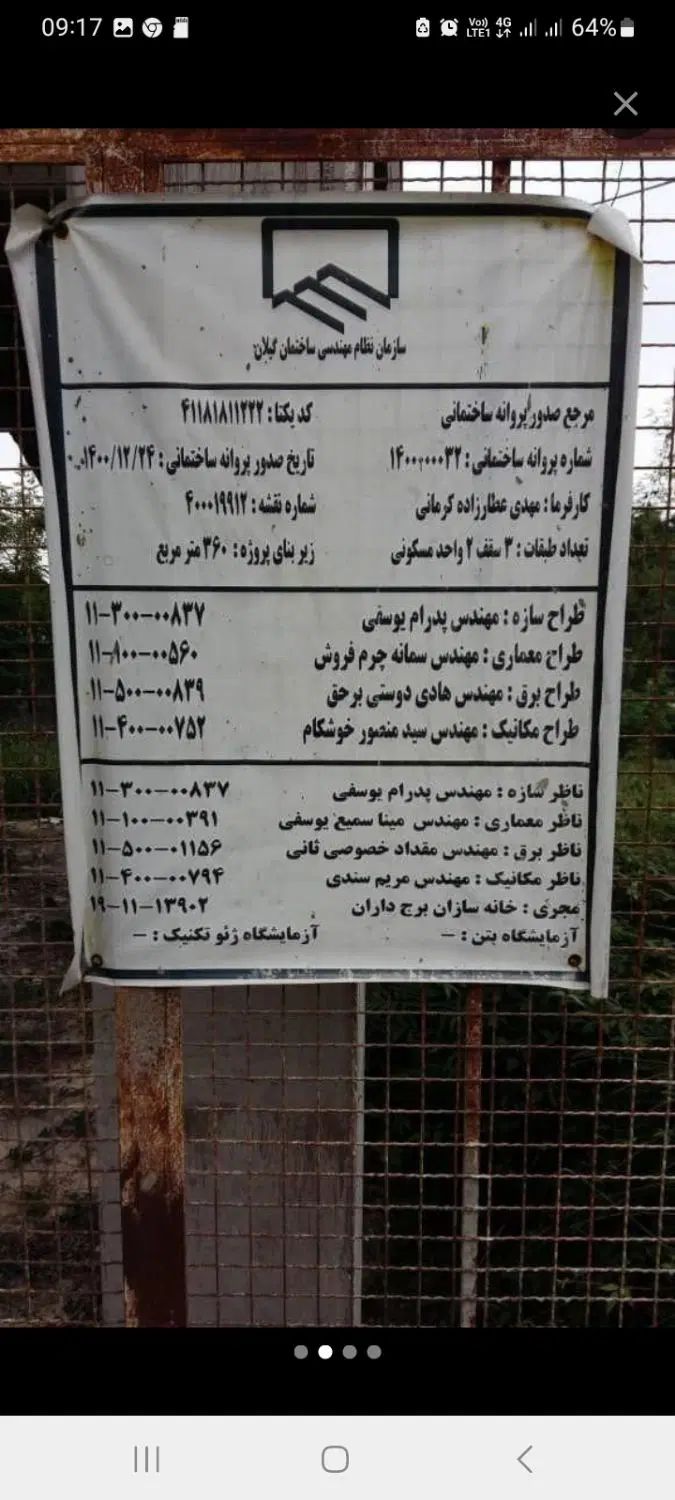 09:17
Vo)) LTE1 4G 64%
سازمان نظام مهندسی ساختمان گیلان
مرجع صدور پروانه ساختمانی کد یکتا : ۴۱۱۸۱۸۱۱۲۲۲
شماره پروانه ساختمانی : ۱۴۰۰۰۰۰۰۳۲ تاریخ صدور پروانه ساختمانی : ۱۴۰۰/۱۲/۲۴
کارفرما : مهدی عطارزاده کرمانی شماره نقشه : ۴۰۰۰۱۹۹۱۲
تعداد طبقات : ۳ سقف ۲ واحد مسکونی زیر بنای پروژه : ۳۶۰ متر مربع
طراح سازه : مهندس پدرام یوسفی ۱۱-۳۰۰-۰۰۸۳۷
طراح معماری : مهندس سمانه چرم فروش ۱۱-۱۰۰-۰۰۵۶۰
طراح برق : مهندس هادی دوستی برحق ۱۱-۵۰۰-۰۰۸۳۹
طراح مکانیک : مهندس سید منصور خوشکام ۱۱-۴۰۰-۰۰۷۵۲
ناظر سازه : مهندس پدرام یوسفی ۱۱-۳۰۰-۰۰۸۳۷
ناظر معماری : مهندس مینا سمیع یوسفی ۱۱-۱۰۰-۰۰۳۹۱
ناظر برق : مهندس مقداد خصوصی ثانی ۱۱-۵۰۰-۰۱۱۵۶
ناظر مکانیک : مهندس مریم سندی ۱۱-۴۰۰-۰۰۷۹۴
مجری : خانه سازان برج داران ۱۹-۱۱-۱۳۹۰۲
آزمایشگاه بتن : - آزمایشگاه ژئو تکنیک : -